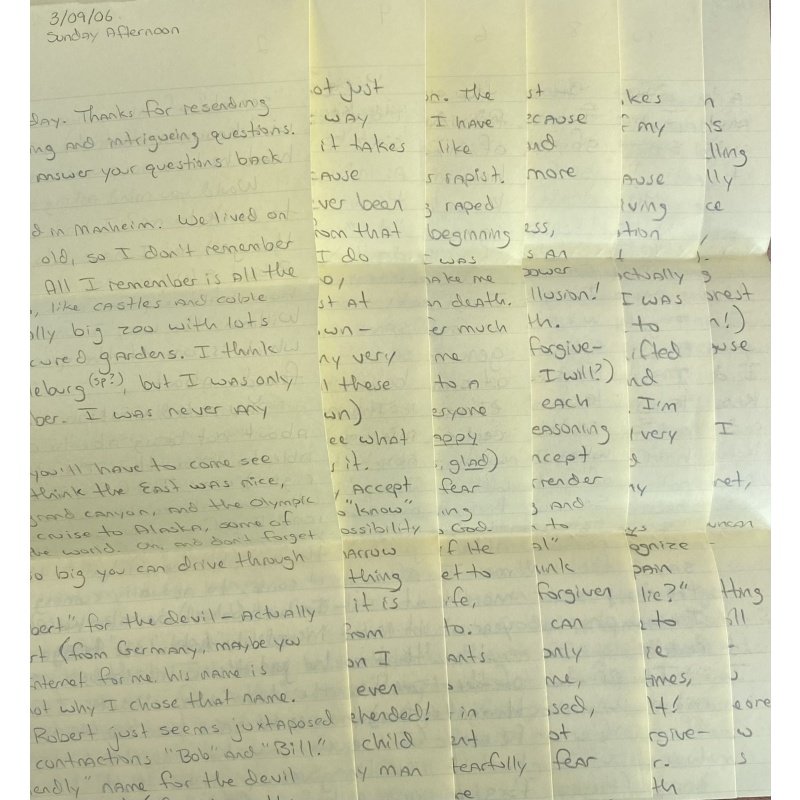 3/09/06
Sunday Afternoon
day. Thanks for resending
ing and intrigueing questions.
answer your questions back
d in Manheim. We lived on
old, so I don't remember
All I remember is all the
, like castles and coble
lly big zoo with lots
cured gardens. I think
eburg (sp?), but I was only
ber. I was never any
you'll have to come see
think the East was nice,
grand canyon, and the Olympic
cruise to Alaska, some of
the world. Oh, and don't forget
so big you can drive through
bert" for the devil - actually
rt (from Germany, maybe you
internet for me, his name is
ot why I chose that name.
Robert just seems juxtaposed
contractions "Bob" and "Bill."
endly" name for the devil
ot just
way
it takes
cause
ver been
om that
I do
o,
st at
wn-
ny very
l these
wn)
ee what
s it.
, accept
o "know"
ossibility
arrow
thing
it is
from
on I
even
ehended!
child
y man
n. The
I have
like
s rapist.
g raped
beginning
I was
ake me
n death.
er much
me
to a
eryone
appy
, glad)
fear
ing
God.
if He
et to
ife,
to.
ants
- in
nt
tearfully
re
st
ecause
nd
more
ess,
s an
power
illusion!
th.
forgive-
I will?)
each
easoning
ncept
rrender
s and
to
al"
unk
forgiven
can
only
me,
sed,
ot
fear
ikes
f my
ause
lving
tion
ctually
I was
to
ifted
nd
I'm
l very
ny
ys
ognize
pain
lie?"
to
ie
times,
It!
rgive-
r.
th
n
is
lling
lly
ce
g
orest
n!)
use
I
net,
uncon-
tting
ll
s
eore
w
s